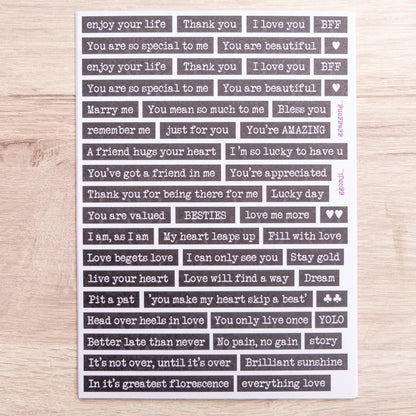 enjoy your life Thank you I love you BFF
You are so special to me You are beautiful ♥
enjoy your life Thank you I love you BFF
You are so special to me You are beautiful ♥
Marry me You mean so much to me Bless you
remember me just for you You're AMAZING
A friend hugs your heart I'm so lucky to have u
You've got a friend in me You're appreciated
Thank you for being there for me Lucky day
You are valued BESTIES love me more ♥♥
I am, as I am My heart leaps up Fill with love
Love begets love I can only see you Stay gold
live your heart Love will find a way Dream
Pit a pat 'you make my heart skip a beat' ♣♣
Head over heels in love You only live once YOLO
Better late than never No pain, no gain story
It's not over, until it's over Brilliant sunshine
In it's greatest florescence everything love